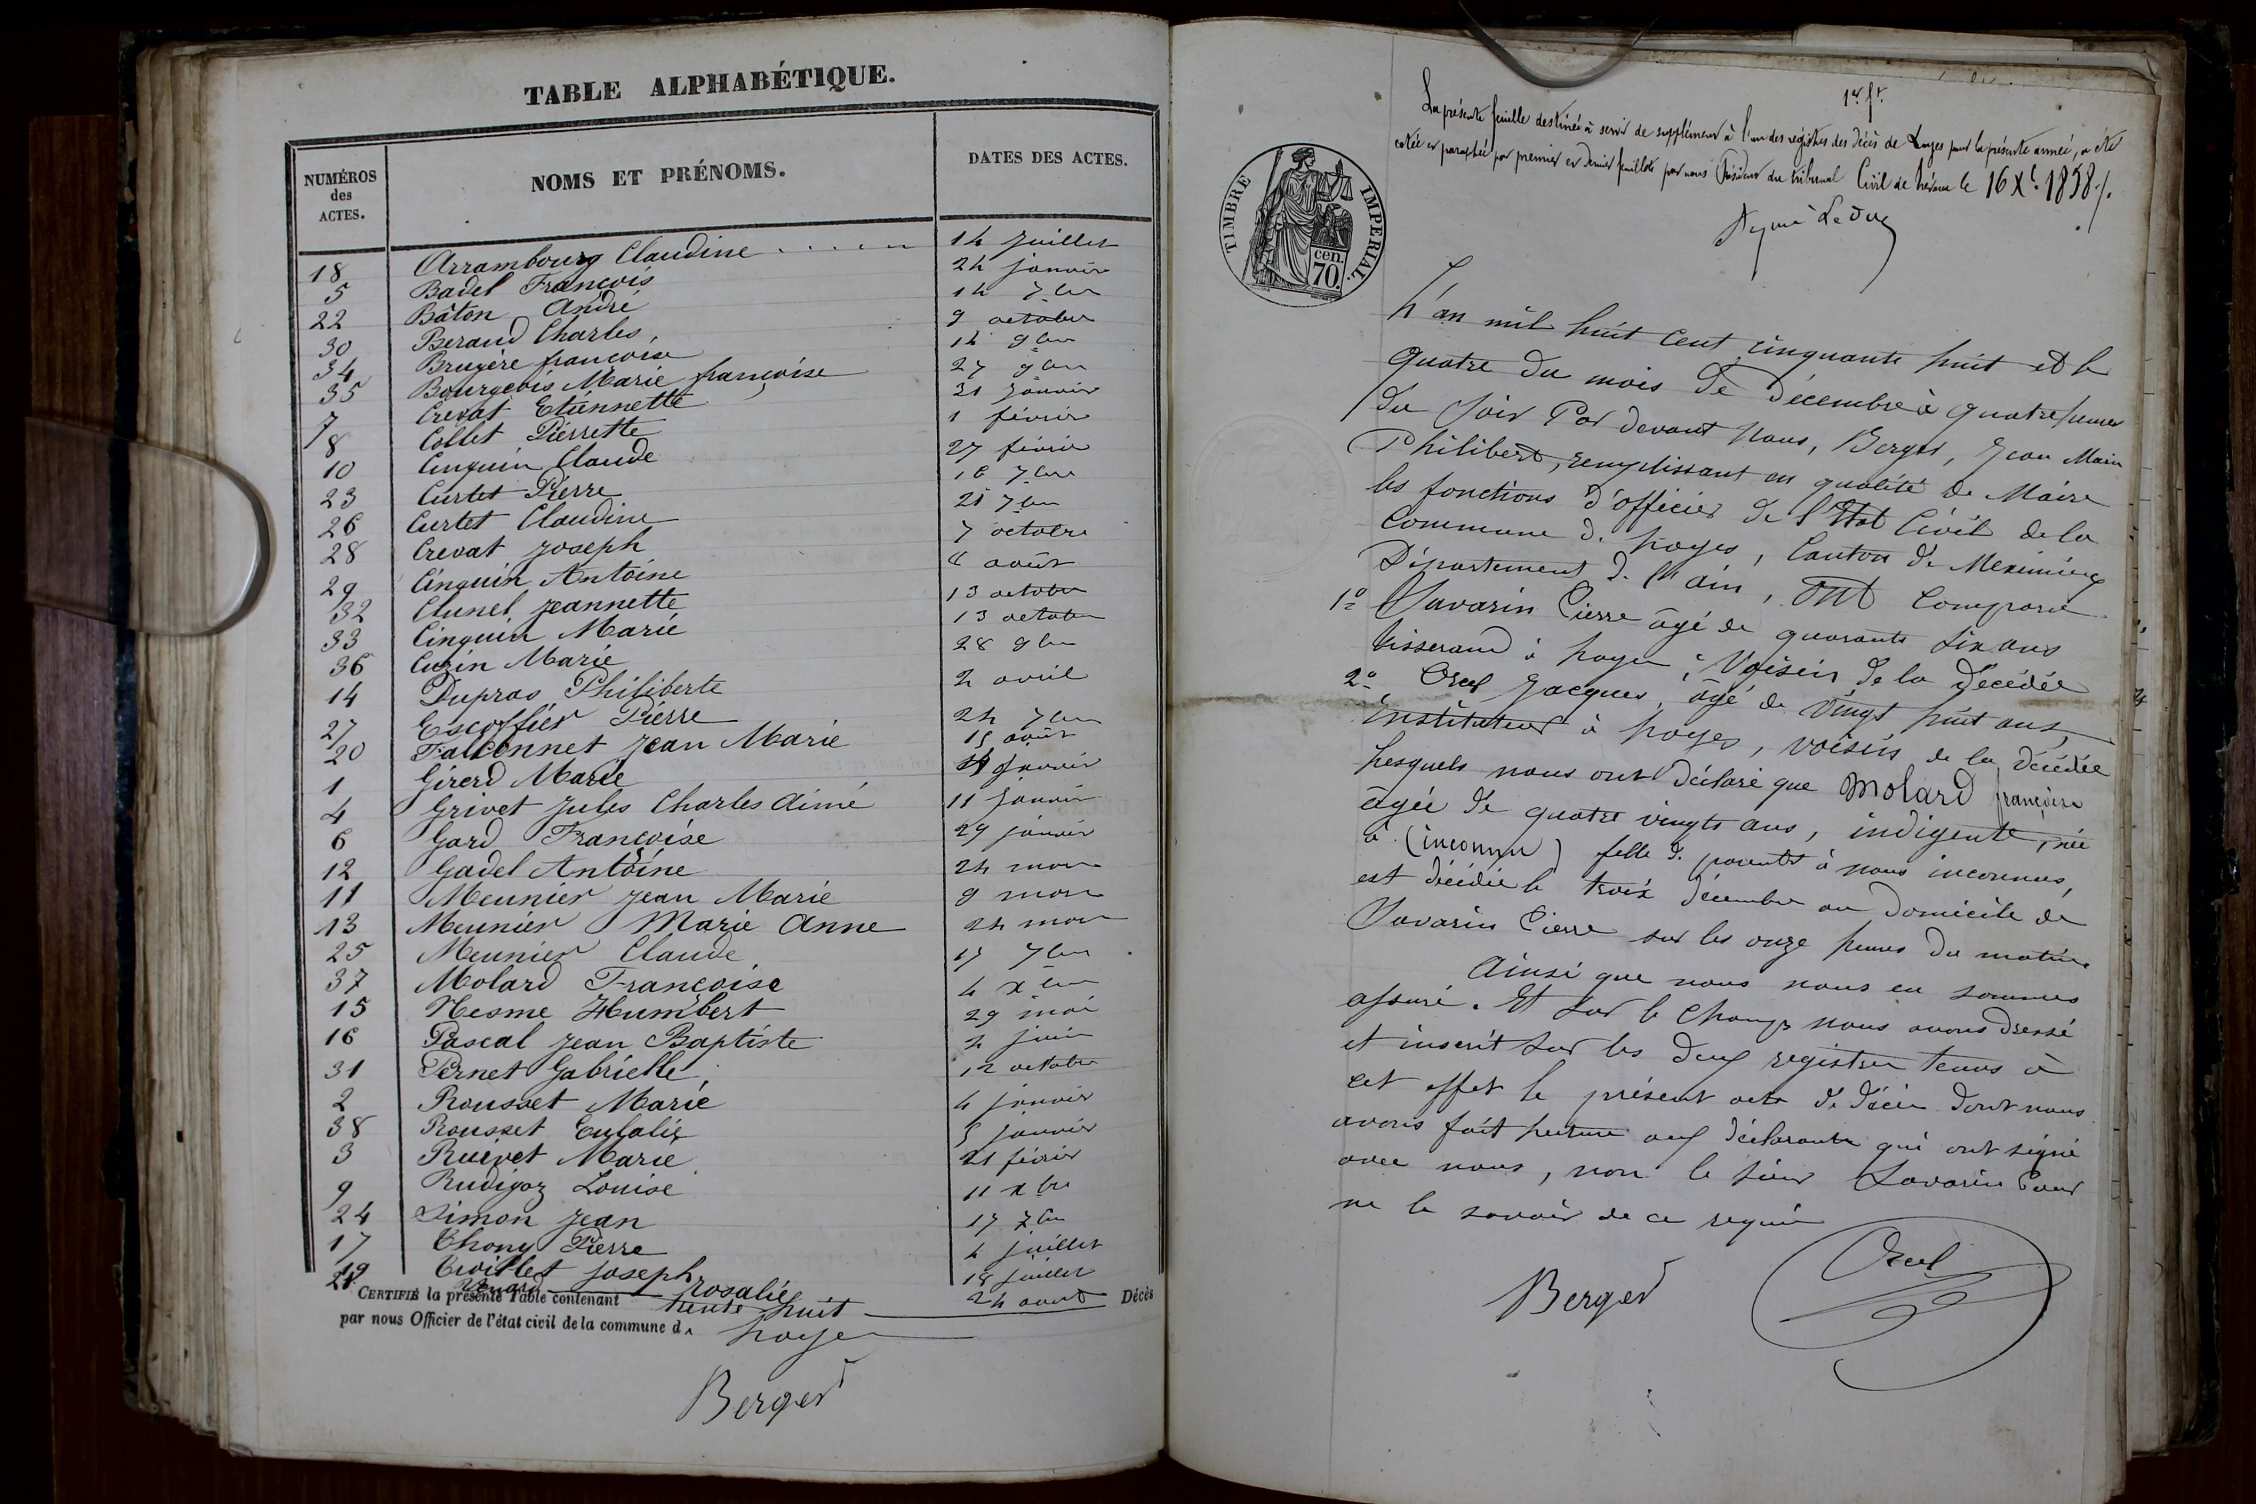 TABLE ALPHABÉTIQUE.
NUMÉROS des ACTES. NOMS ET PRÉNOMS. DATES DES ACTES.
18 Arrambourg Claudine 14 juillet
5 Badel François 24 janvier
22 Bâton André 14 7bre
30 Beraud Charles 9 octobre
34 Bruyère françoise 14 9bre
35 Bourgeois Marie françoise 27 9bre
7 Crevat Etiennette 31 janvier
8 Collet Pierrette 1 février
10 Cinquin Claude 27 février
23 Curtet Pierre 16 7bre
26 Curtet Claudine 21 7bre
28 Crevat Joseph 7 octobre
29 Cinquin Antoine 8 août
32 Clunel Jeannette 13 octobre
33 Cinquin Marie 13 octobre
36 Cuzin Marie 28 9bre
14 Dupras Philiberte 2 avril
27 Escoffier Pierre 24 7bre
20 Falconnet Jean Marie 15 août
1 Girerd Marie janvier
4 Grivet Jules Charles Aimé 11 janvier
6 Gard Françoise 29 janvier
12 Gadel Antoine 24 mars
11 Meunier Jean Marie 9 mars
13 Meunier Marie Anne 24 mars
25 Meunier Claude 17 7bre
37 Molard Françoise 4 xbre
15 Nesme Humbert 29 mai
16 Pascal Jean Baptiste 2 juin
31 Pernet Gabrielle 12 octobre
2 Rousset Marie 4 janvier
38 Rousset Eulalie 5 janvier
3 Ruivet Marie 21 février
9 Rudigoz Louise 11 xbre
24 Simon Jean 17 7bre
17 Thony Pierre 4 juillet
19 Troillet Joseph 18 juillet
21 rosalie 24 août
CERTIFIÉ la présente Table contenant trente huit Décès
par nous Officier de l'état civil de la commune d
Berger
1er ft.
La présente feuille destinée à servir de supplément à l'un des registres des décès de Loyes pour la présente année, a été
cotée et paraphée par premier et dernier feuillets par nous Président du tribunal Civil de Trévoux le 16 Xe 1858
TIMBRE IMPÉRIAL.
70. cen.
L'an mil huit cent cinquante huit et le
quatre du mois de décembre à quatre heures
du soir Par devant nous, Berger, Jean Marie
Philibert, remplissant en qualité de Maire
les fonctions d'officier de l'Etat Civil de la
Commune de Loyes, Canton de Meximieux
Département de l'ain, Ont Comparu
1° Savarin Pierre âgé de quarante six ans
tisserand à Loyes, Voisin de la décédée
2° Jacques, âgé de vingt huit ans,
instituteur à Loyes, voisin de la décédée
Lesquels nous ont déclaré que Molard françoise
âgée de quatre vingts ans, indigente, née
à (inconnu) fille de parents à nous inconnus,
est décédée le trois décembre au domicile de
Savarin Pierre sur les onze heures du matin
Ainsi que nous nous en sommes
assuré. Et sur le Champ nous avons dressé
et inscrit sur les deux registres tenus à
cet effet le présent acte de décès dont nous
avons fait lecture aux déclarants qui ont signé
avec nous, non le sieur Savarin Pour
ne le savoir de ce requis
Berger